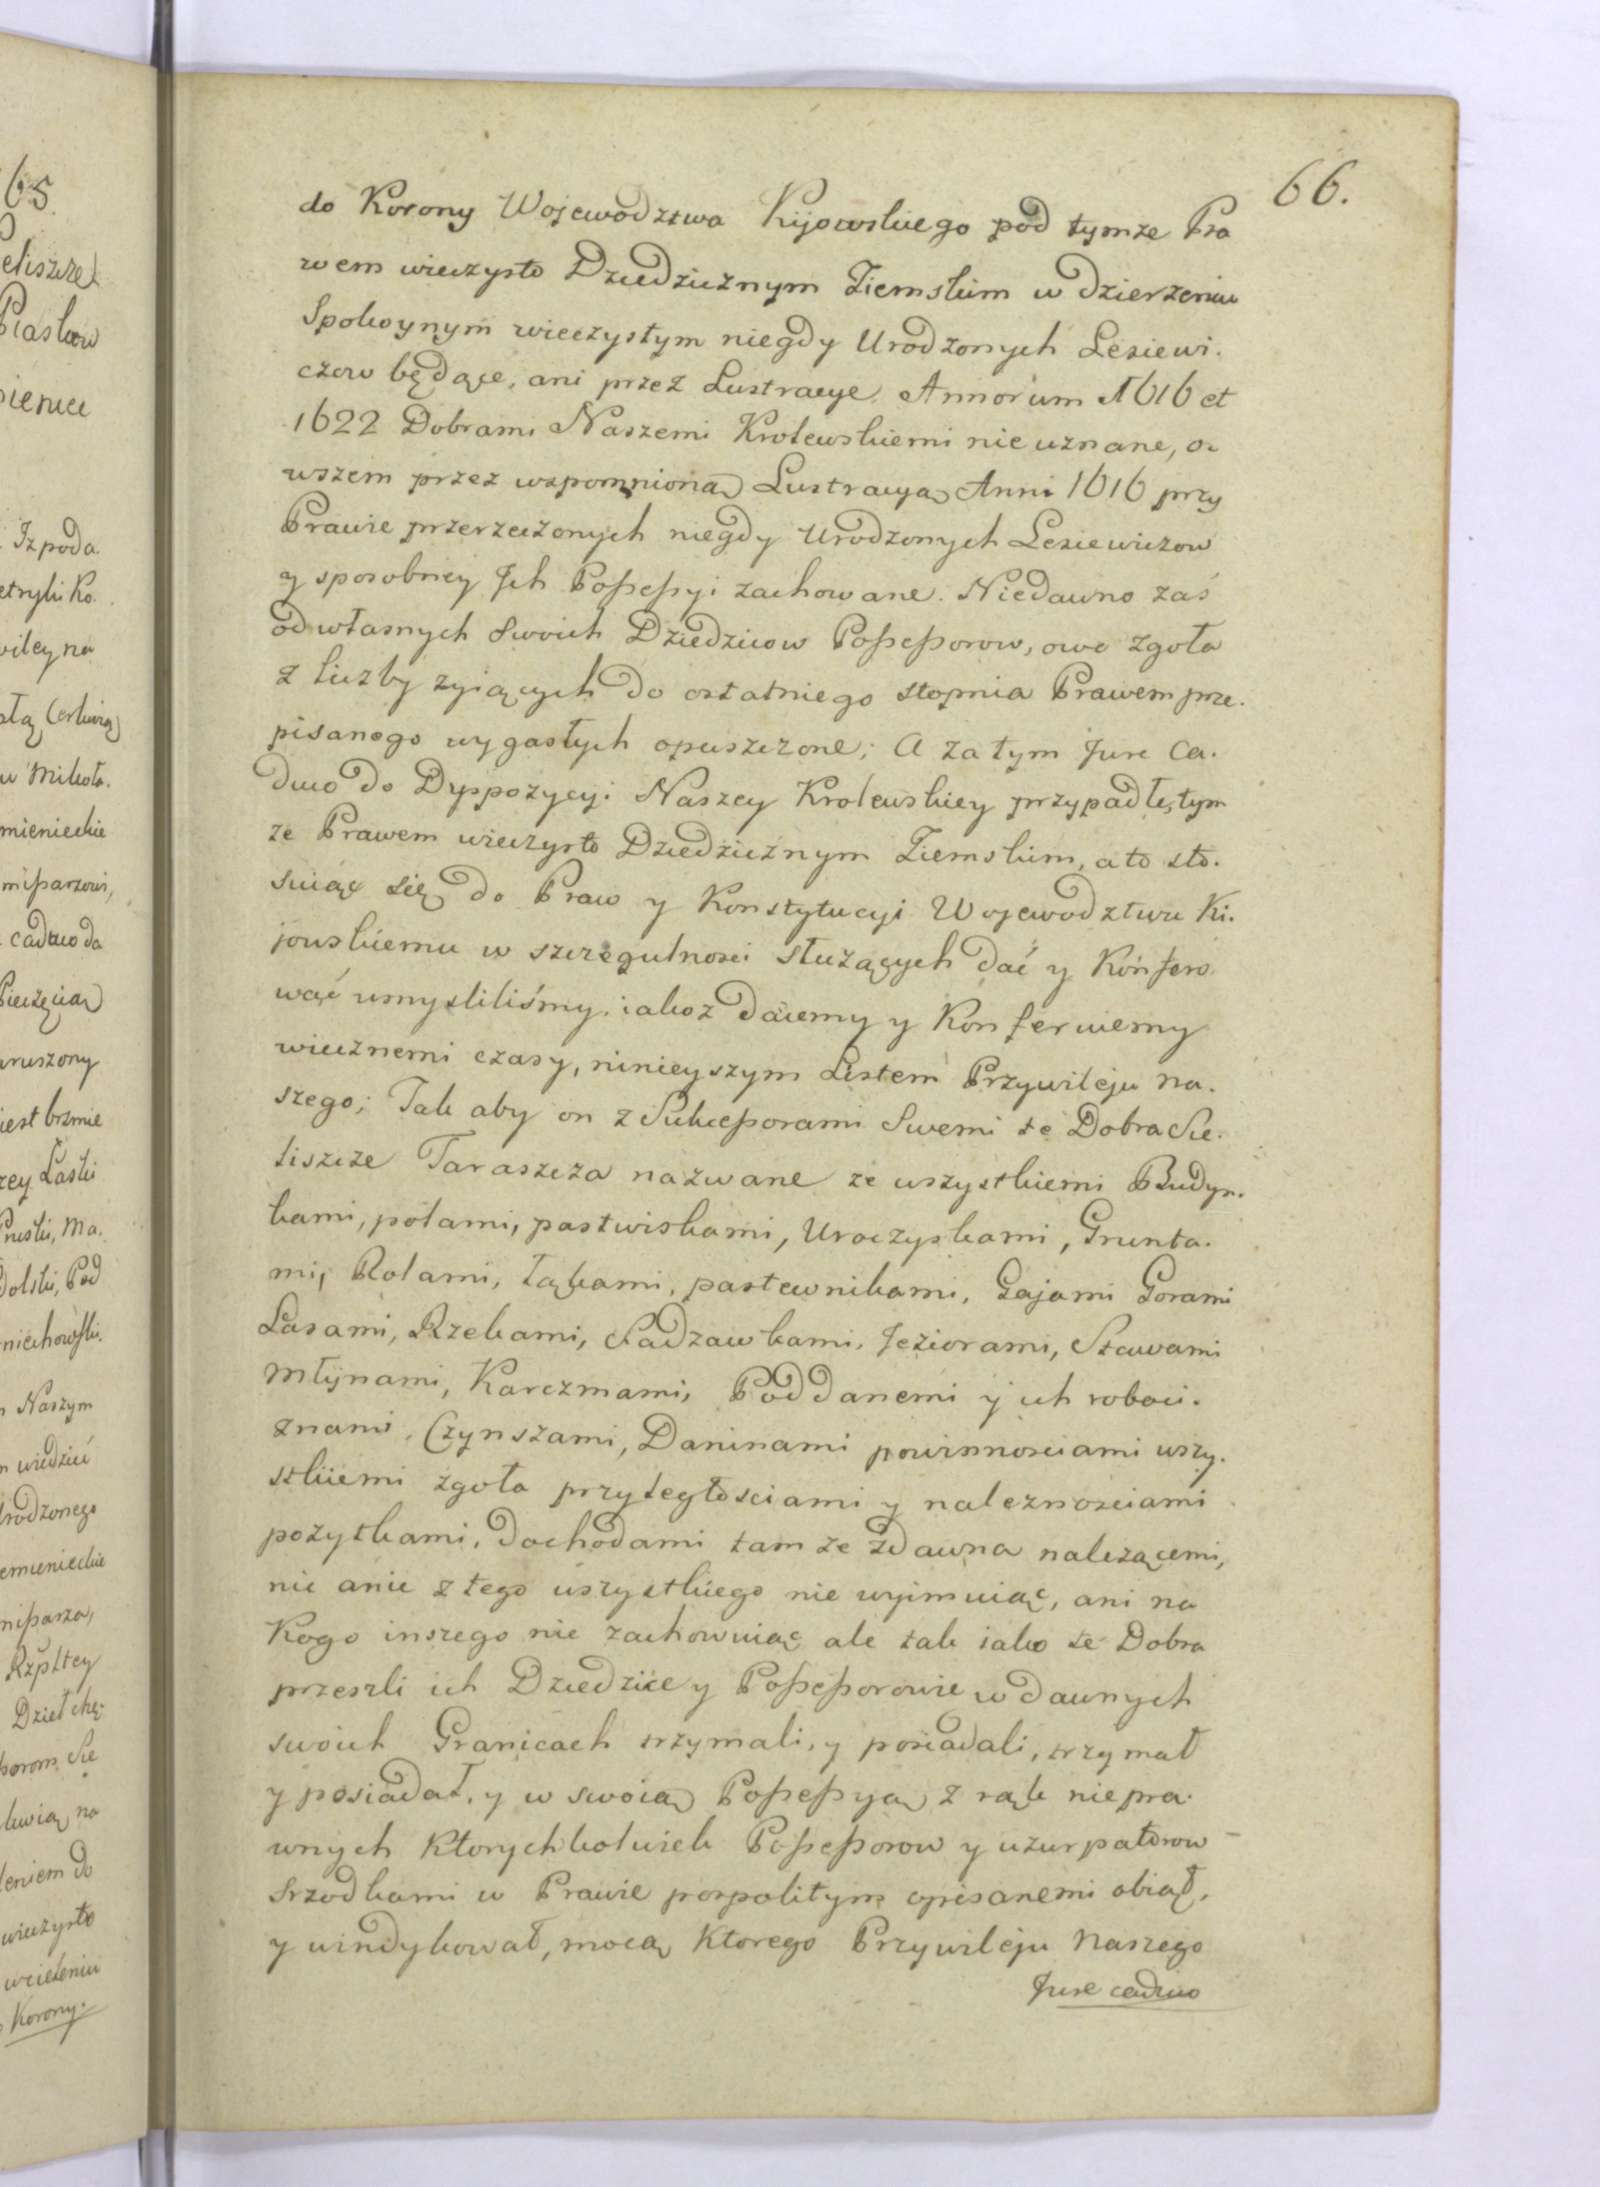 66.
do Korony Wojewodztwa Kijowskiego pod tymze Pra
wem wieczysto Dziedzicznym Ziemskim w dzierzeniu
Spokoynym wieczystym niegdy Urodzonych Lesiewi.
czow będące, ani przez Lustracye Annorum 1616 et
1622 Dobrami Naszemi Krolewskiemi nie uznane, o.
wszem przez wspomnioną Lustracyą Anni 1616 przy
Prawie przerzeczonych niegdy Urodzonych Lesiewiczow
y sposobney Jch Poſseſsyi zachowane. Niedawno zaś
od własnych Swoich Dziedzicow Poſseſsorow, owo zgoła
z liczby zyiących do ostatniego stopnia Prawem prze.
pisanego wygasłych opuszczone; A zatym Jure Ca.
duco do Dyspozycyi Naszey Krolewskiey przypadłe, tym
ze Prawem wieczysto Dziedzicznym Ziemskim, a to sto.
suiąc się do Praw y Konstytucyi Wojewodztwu Ki.
jowskiemu w szczegulnosci służących dać y Konfero
wać umyslilismy, iakoż daiemy y Konferuiemy
wiecznemi czasy, ninieyszym Listem Przywileju na.
szego; Tak aby on z Sukceſsorami Swemi te Dobra Sie.
liszcze Taraszcza nazwane ze wszystkiemi Budyn.
kami, polami, pastwiskami, Uroczyskami, Grunta.
mi, Rolami, łąkami, pastewnikami, Gajami Gorami
Lasami, Rzekami, Sadzawkami, Jeziorami, Stawami
Młynami, Karczmami, Poddanemi y ich roboci.
znami, Czynszami, Daninami powinnosciami wszy.
stkiemi zgoła przyległosciami y naleznosciami
pozytkami, dochodami tam ze zdawna nalezącemi,
nic a nic z tego wszystkiego nie wyimuiąc, ani na
Kogo inszego nie zachowuiąc ale tak iako te Dobra
przeszli ich Dziedzice y Poſseſsorowie w dawnych
swoich Granicach trzymali, y posiadali, trzymał
y posiadał, y w swoią Poſseſsyą z rąk niepra.
wnych Ktorychkolwiek Poſseſsorow y uzurpatorow
Srzodkami w Prawie pospolitym opisanemi obiął,
y windykował, mocą Ktorego Przywileju Naszego
Jure caduco